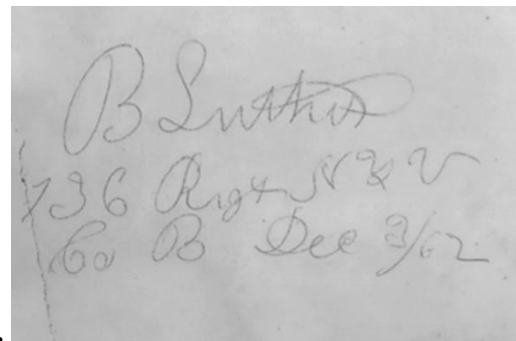 B Luther
136 Regt N Y V
Co B Dec 3/62